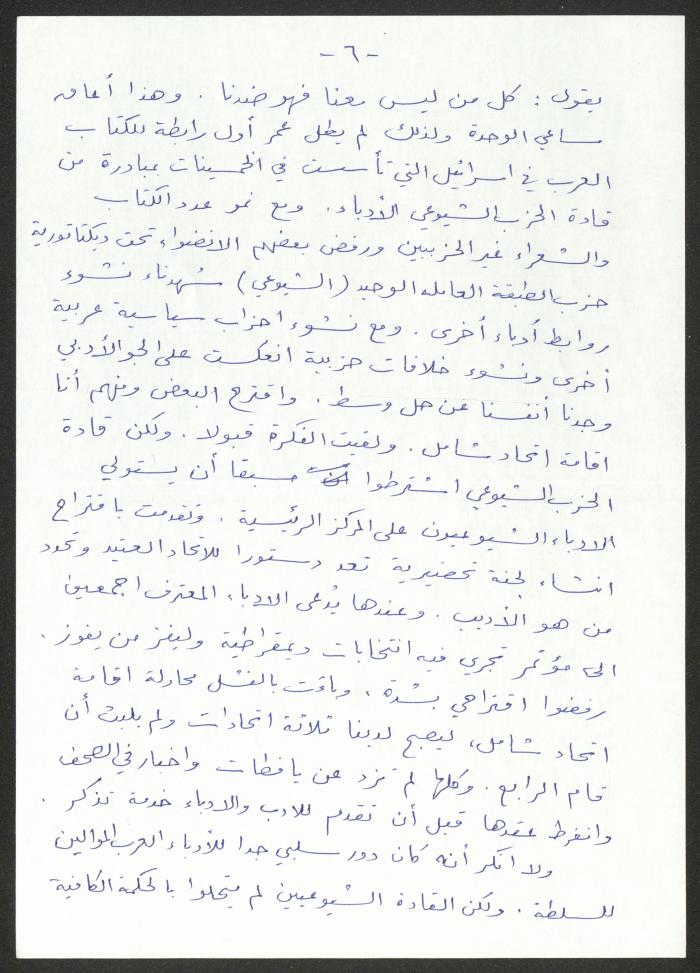 - ٦ -
يقول : كل من ليس معنا فهو ضدنا . وهذا أعاق
مساعي الوحدة ولذلك لم يطل عمر أول رابطة للكتاب
العرب في اسرائيل التي تأسست في الخمسينات بمبادرة من
قادة الحزب الشيوعي الأدباء . ومع نمو عدد الكتاب
والشعراء غير الحزبيين ورفض بعضهم الانضواء تحت ديكتاتورية
حزب الطبقة العاملة الوحيد (الشيوعي) شهدنا نشوء
روابط أدباء أخرى . ومع نشوء احزاب سياسية عربية
أخرى ونشوء خلافات حزبية انعكست على الجو الأدبي
وجدنا أنفسنا عن حل وسط . واقترح البعض ومنهم أنا
اقامة اتحاد شامل . ولقيت الفكرة قبولا . ولكن قادة
الحزب الشيوعي اشترطوا مسبقا أن يستولي
الادباء الشيوعيون على المركز الرئيسية . وتقدمت باقتراح
انشاء لجنة تحضيرية تعد دستورا للاتحاد العتيد وتحدد
من هو الأديب . وعندها يُدعى الادباء المعترف اجمعين
الى مؤتمر تجري فيه انتخابات ديمقراطية وليفز من يفوز .
رفضوا اقتراحي بشدة . وباءت بالفشل محاولة اقامة
اتحاد شامل ، ليصبح لدينا ثلاثة اتحادات ولم يلبث أن
قام الرابع . وكلها لم تزد عن يافطات واخبار في الصحف
وانفرط عقدها قبل أن تقدم للادب والادباء خدمة تذكر .
ولا انكر أنه كان دور سلبي جدا للأدباء العرب الموالين
للسلطة . ولكن القادة الشيوعيين لم يتحلوا بالحكمة الكافية